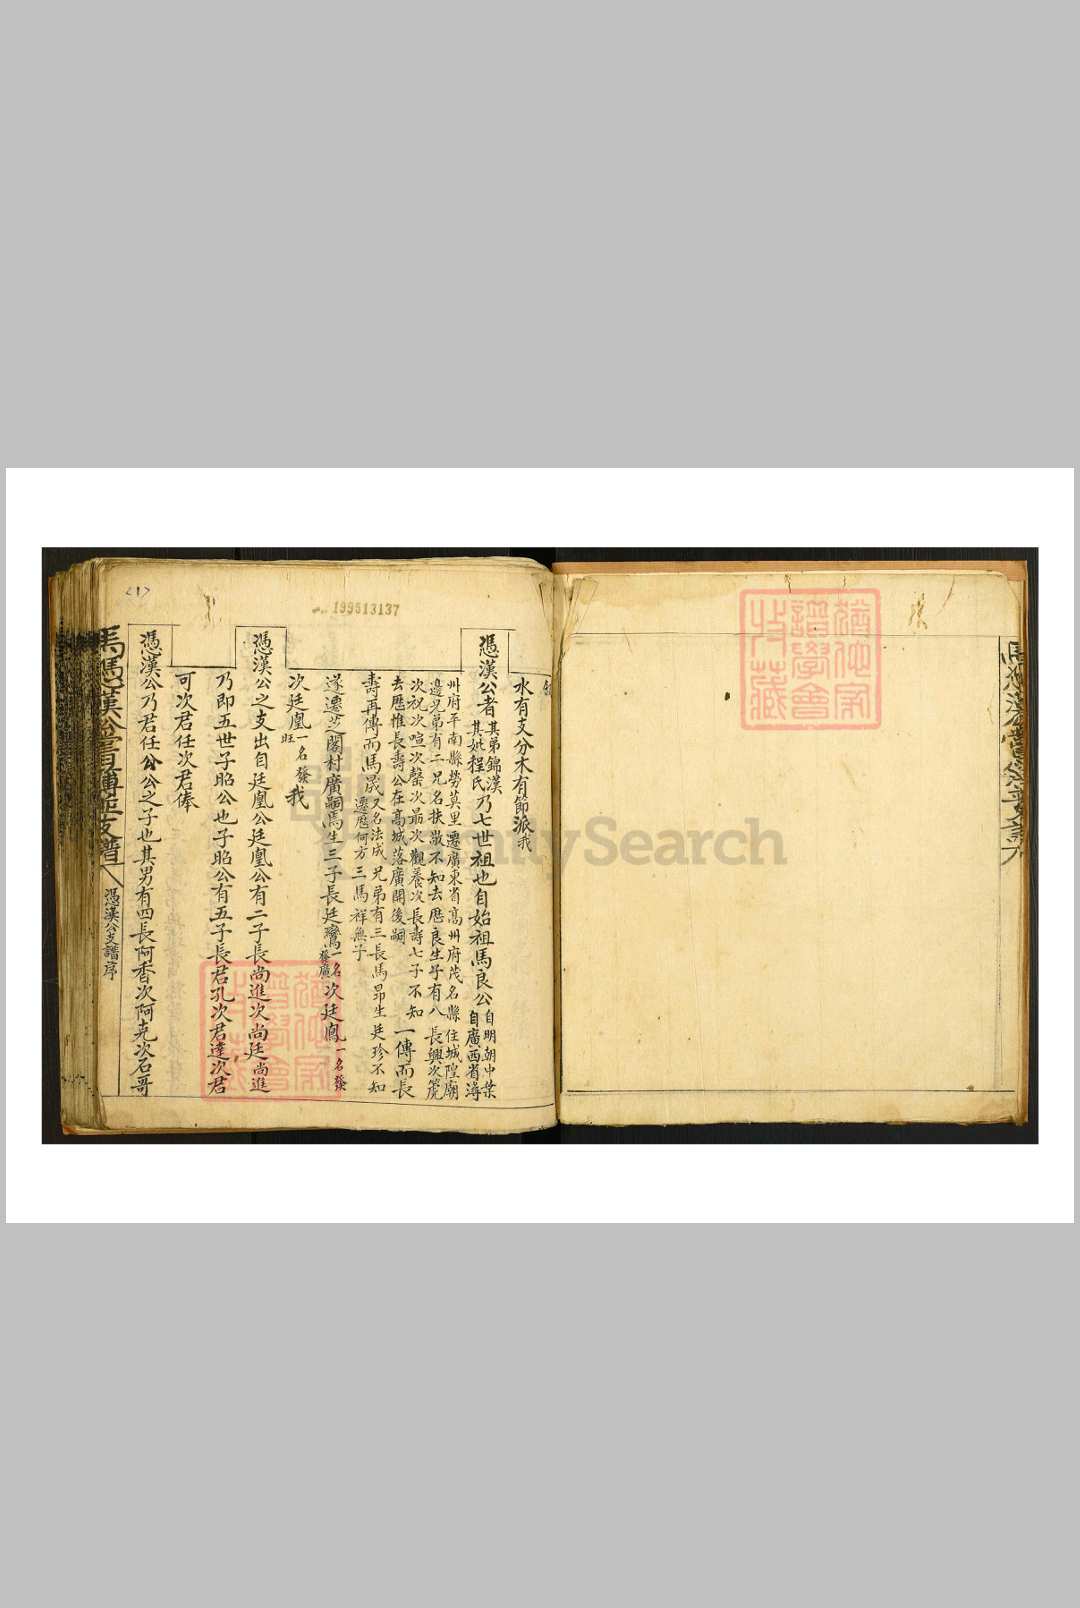 水有支分木有節派我
憑漢公者其弟錦漢其妣程氏乃七世祖也自始祖馬良公自明朝中葉自廣西省潯
州府平南縣勞莫里遷廣東省高州府茂名縣住城隍廟
邊兄弟有二兄名扶敳不知去歷良生子有八長興次篪
次祝次喧次罄次最次觀養次長壽七子不知
去歷惟長壽公在高城落廣開後嗣一傳而長
壽再傳而馬晟又名法成遷歷何方兄弟有三長馬昂生廷珍不知三馬祥無子
遂遷芝閣村廣嗣馬生三子長廷鸞一名發廣次廷鳳一名發
次廷凰一名發旺我
憑漢公之支出自廷凰公廷凰公有二子長尚進次尚廷尚進
乃即五世子昭公也子昭公有五子長君孔次君達次君
可次君任次君俸
憑漢公乃君任公公之子也其男有四長阿香次阿堯次石哥
憑漢公支譜序
199513137
<1>
FamilySearch